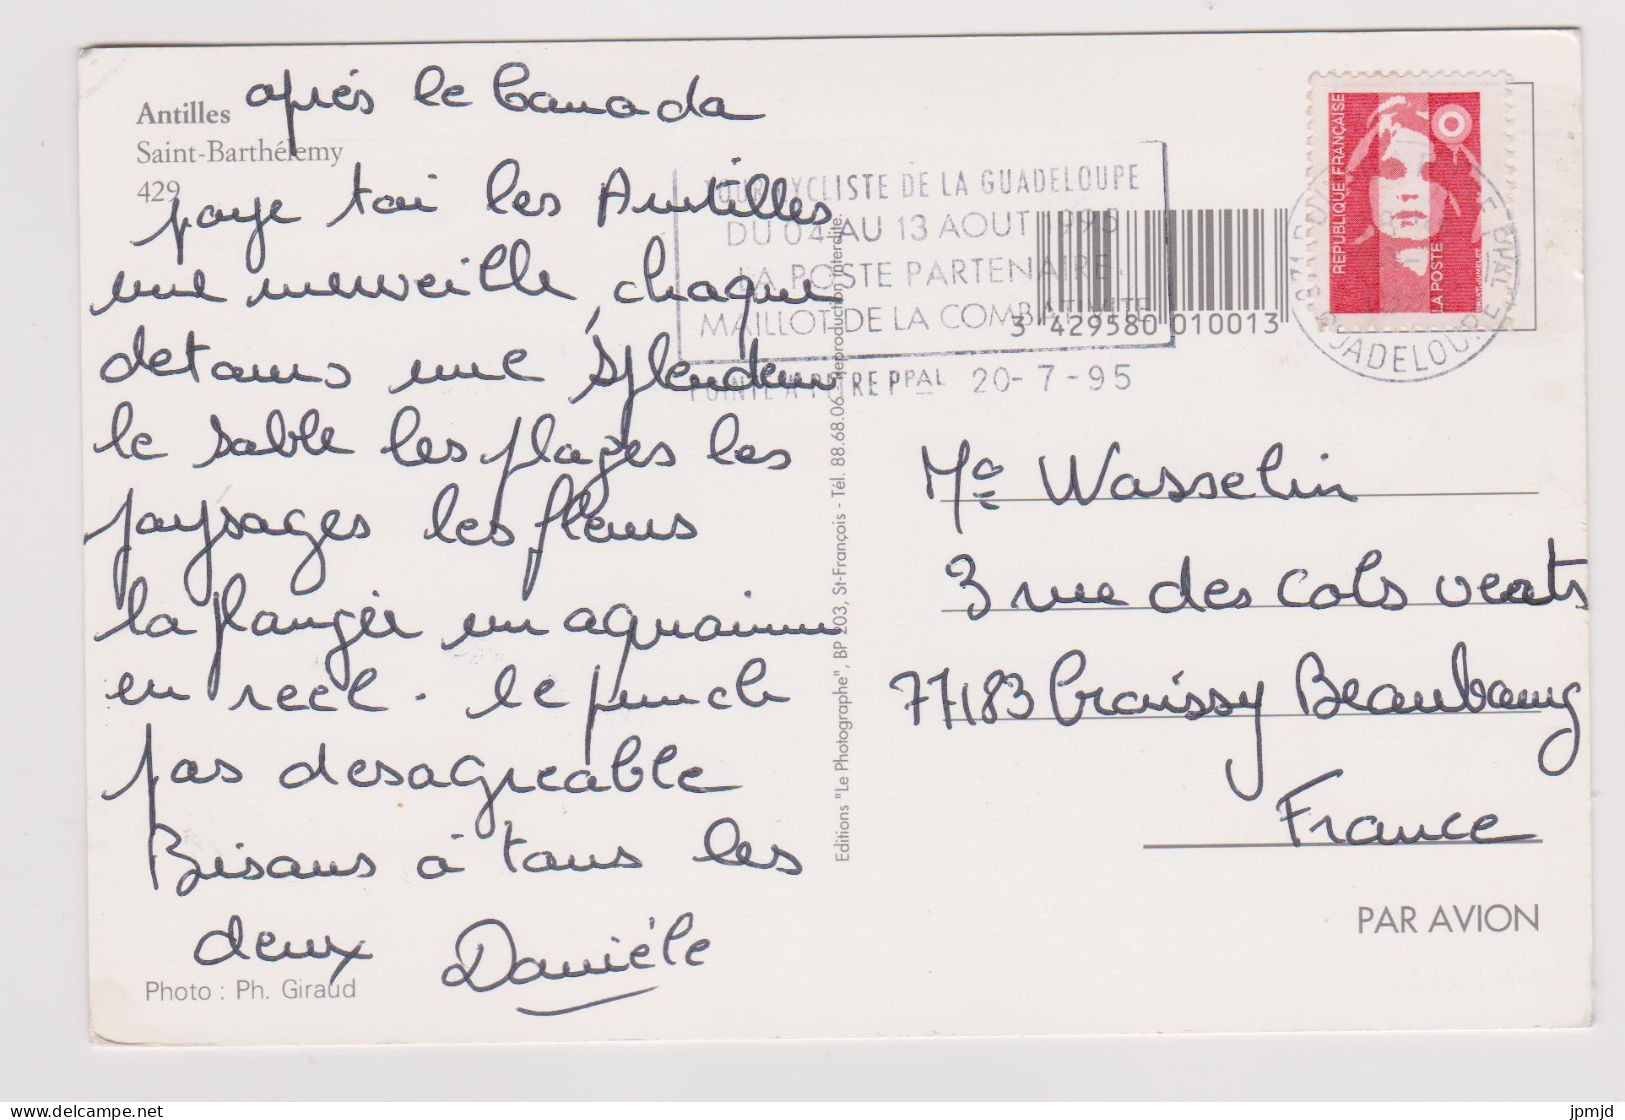 Antilles
Saint-Barthélemy
429
après le Canada
paye toi les Antilles
une merveille, chaque
detours une splendeur
le sable les plages les
paysages les fleurs
la plongée un aquarium
en réel. le punch
pas desagreable
Bisous à tous les
deux Danièle
Photo : Ph. Giraud
Editions "Le Photographe", BP 203, St-François - Tél. 88.68.06 - Reproduction interdite.
TOUR CYCLISTE DE LA GUADELOUPE
DU 04 AU 13 AOUT 1995
LA POSTE PARTENAIRE
MAILLOT DE LA COMBATIVITE
POINTE A PITRE PPAL 20-7-95
3 429580 010013
REPUBLIQUE FRANÇAISE
LA POSTE
GUADELOUPE
Me Wasselin
3 rue des cols verts
77183 Croissy Beaubourg
France
PAR AVION
jpmjd